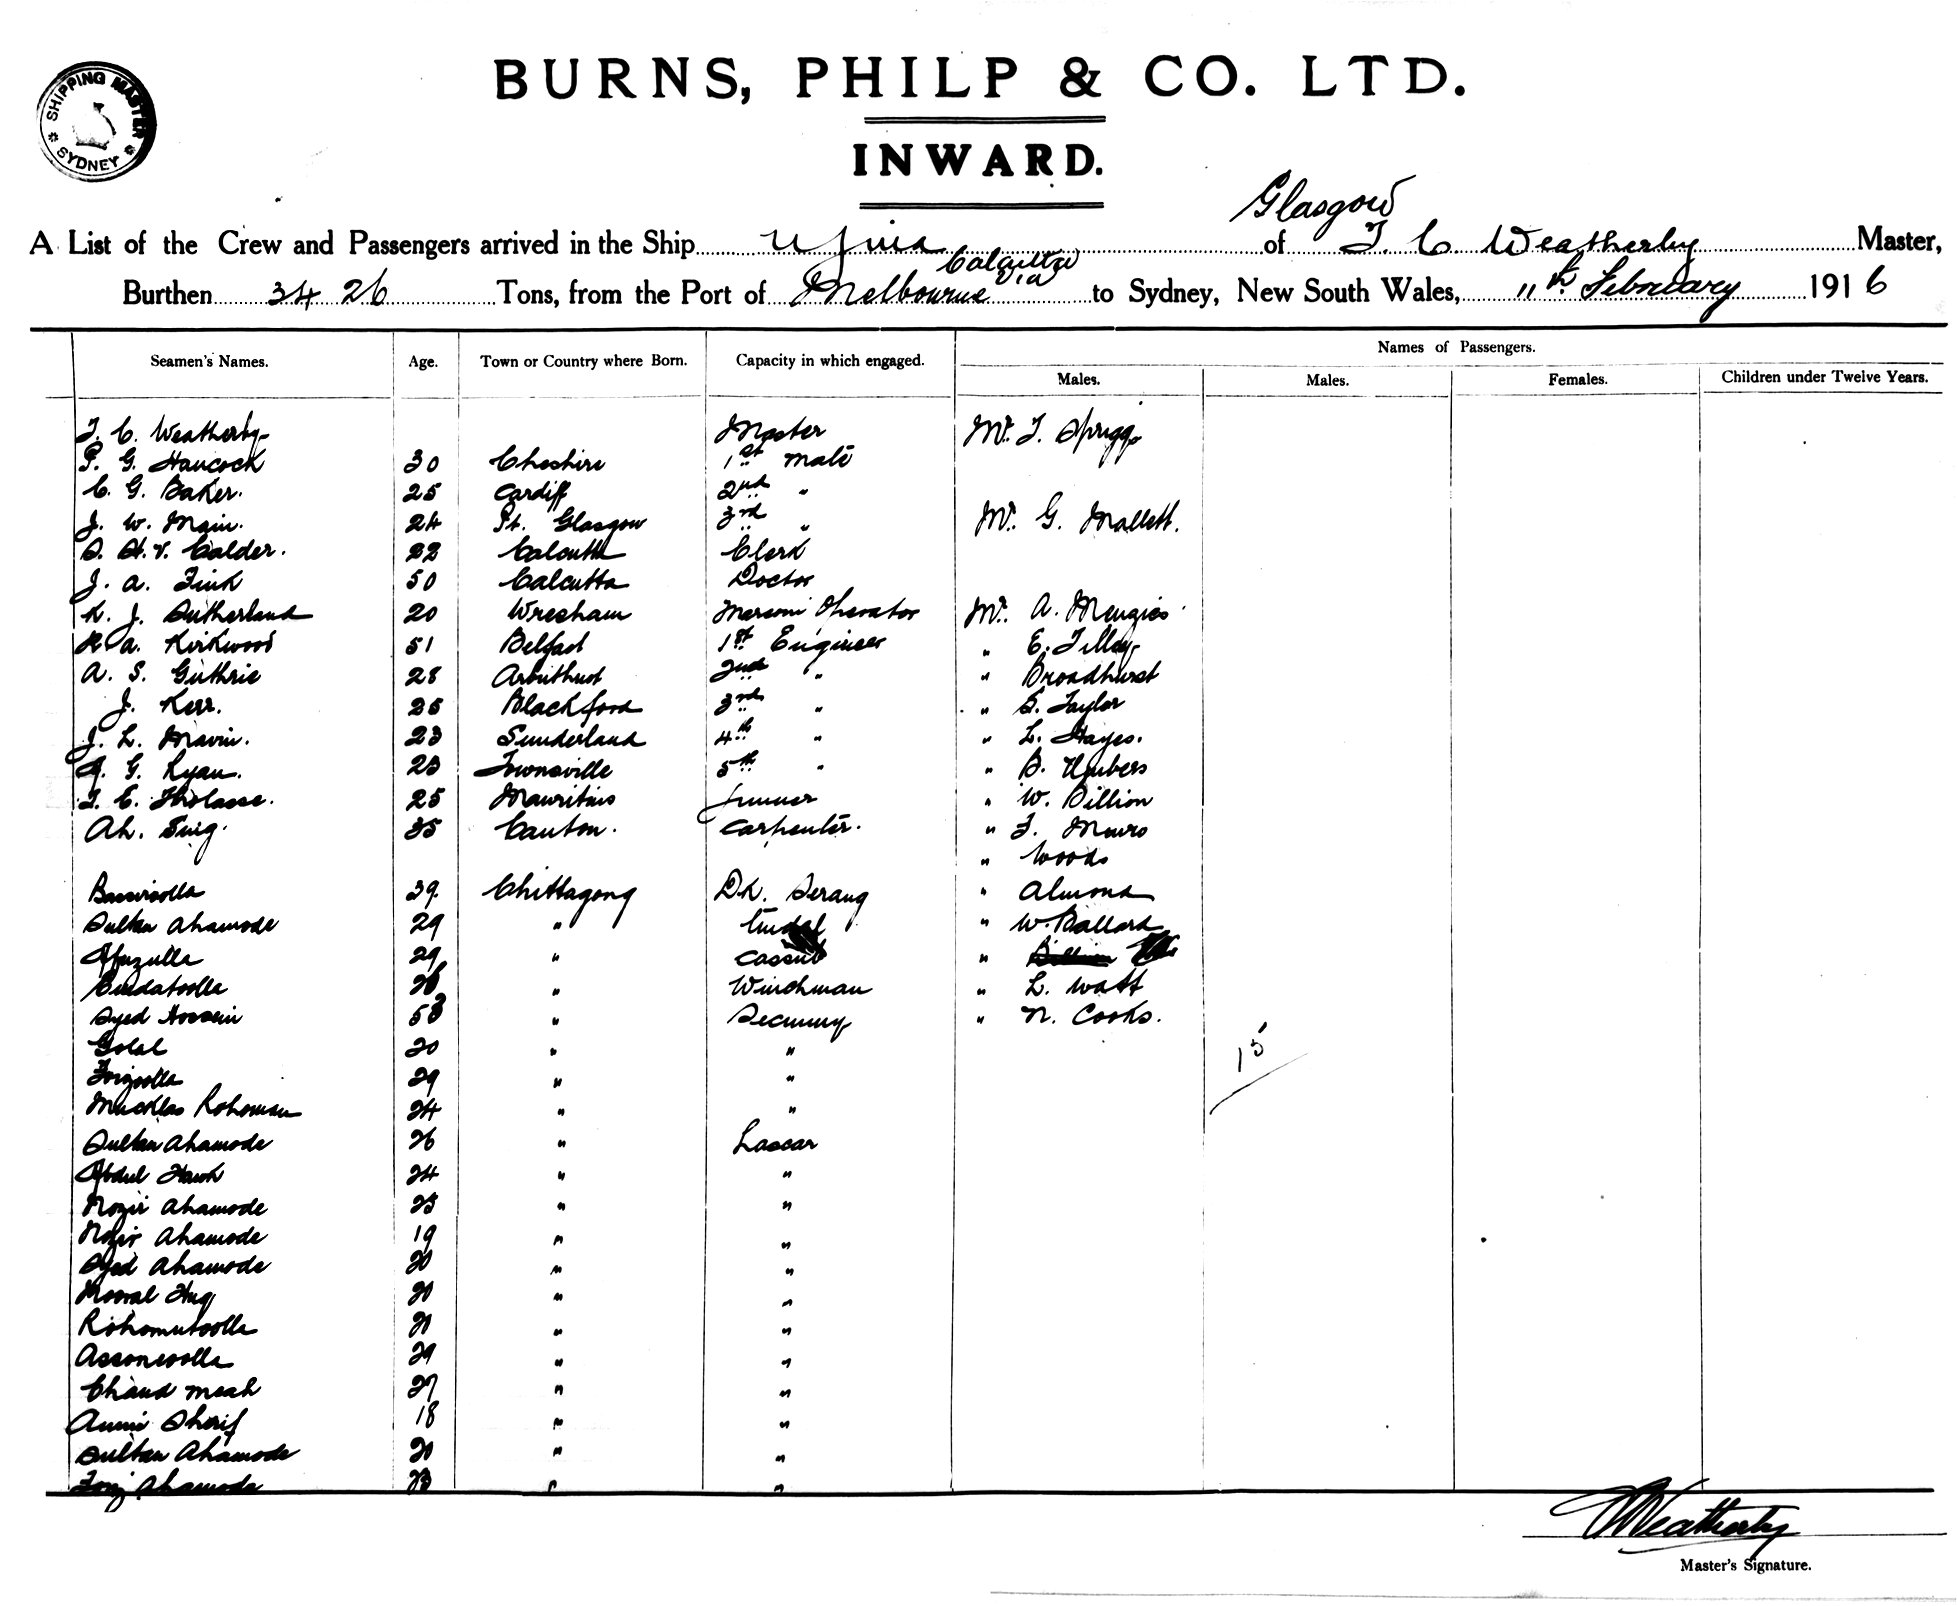 SHIPPING MASTER
SYDNEY
BURNS, PHILP & CO. LTD.
INWARD.
Glasgow
A List of the Crew and Passengers arrived in the Ship Ujina of T. C. Weatherby Master,
Calcutta via
Burthen 3426 Tons, from the Port of Melbourne to Sydney, New South Wales, 11th February 1916
Names of Passengers.
Seamen's Names. Age. Town or Country where Born. Capacity in which engaged. Males. Males. Females. Children under Twelve Years.
T. C. Weatherby Master Mr. T. Spriggs
P. G. Hancock 30 Cheshire 1st Mate
C. G. Baker. 25 Cardiff 2nd "
J. W. Main. 24 Pt. Glasgow 3rd " Mr. G. Mallett.
Calder. 22 Calcutta Clerk
J. A. Fink 50 Calcutta Doctor
K. J. Sutherland 20 Wrexham Marconi Operator Mr. A. Menzies
A. Kirkwood 51 Belfast 1st Engineer " E. Tilley
A. S. Guthrie 28 Arbuthnot 2nd " " Broadhurst
J. Kerr. 25 Blackford 3rd " " S. Taylor
J. L. Mavin. 23 Sunderland 4th " " L. Hayes.
G. Ryan. 23 Townsville 5th " " B.
T. E. 25 Mauritius " W. Billion
Ah. Sing. 35 Canton. Carpenter. " F. Munro
" Woods
39 Chittagong Dk. Serang " Almond
Sultan Ahamode 29 " Tindal " W. Ballard
Afuzulla 29 " Cassub "
" Winchman " L. Watt
Syed Hossein 53 " Secunny " N. Cooks.
Golal 20 " "
15
29 " "
Mucklas Rohoman 24 " "
Sultan Ahamode 26 " Lascar
Abdul Hawk 24 " "
Nozir Ahamode 25 " "
Nozir Ahamode 19 " "
Syed Ahamode 20 " "
Huq 20 " "
Rohomutoolla 21 " "
Assonoolla 29 " "
Chand Meah 27 " "
Sherif 18 " "
Sultan Ahamode 20 " "
Ahamode 23 " "
Weatherby
Master's Signature.